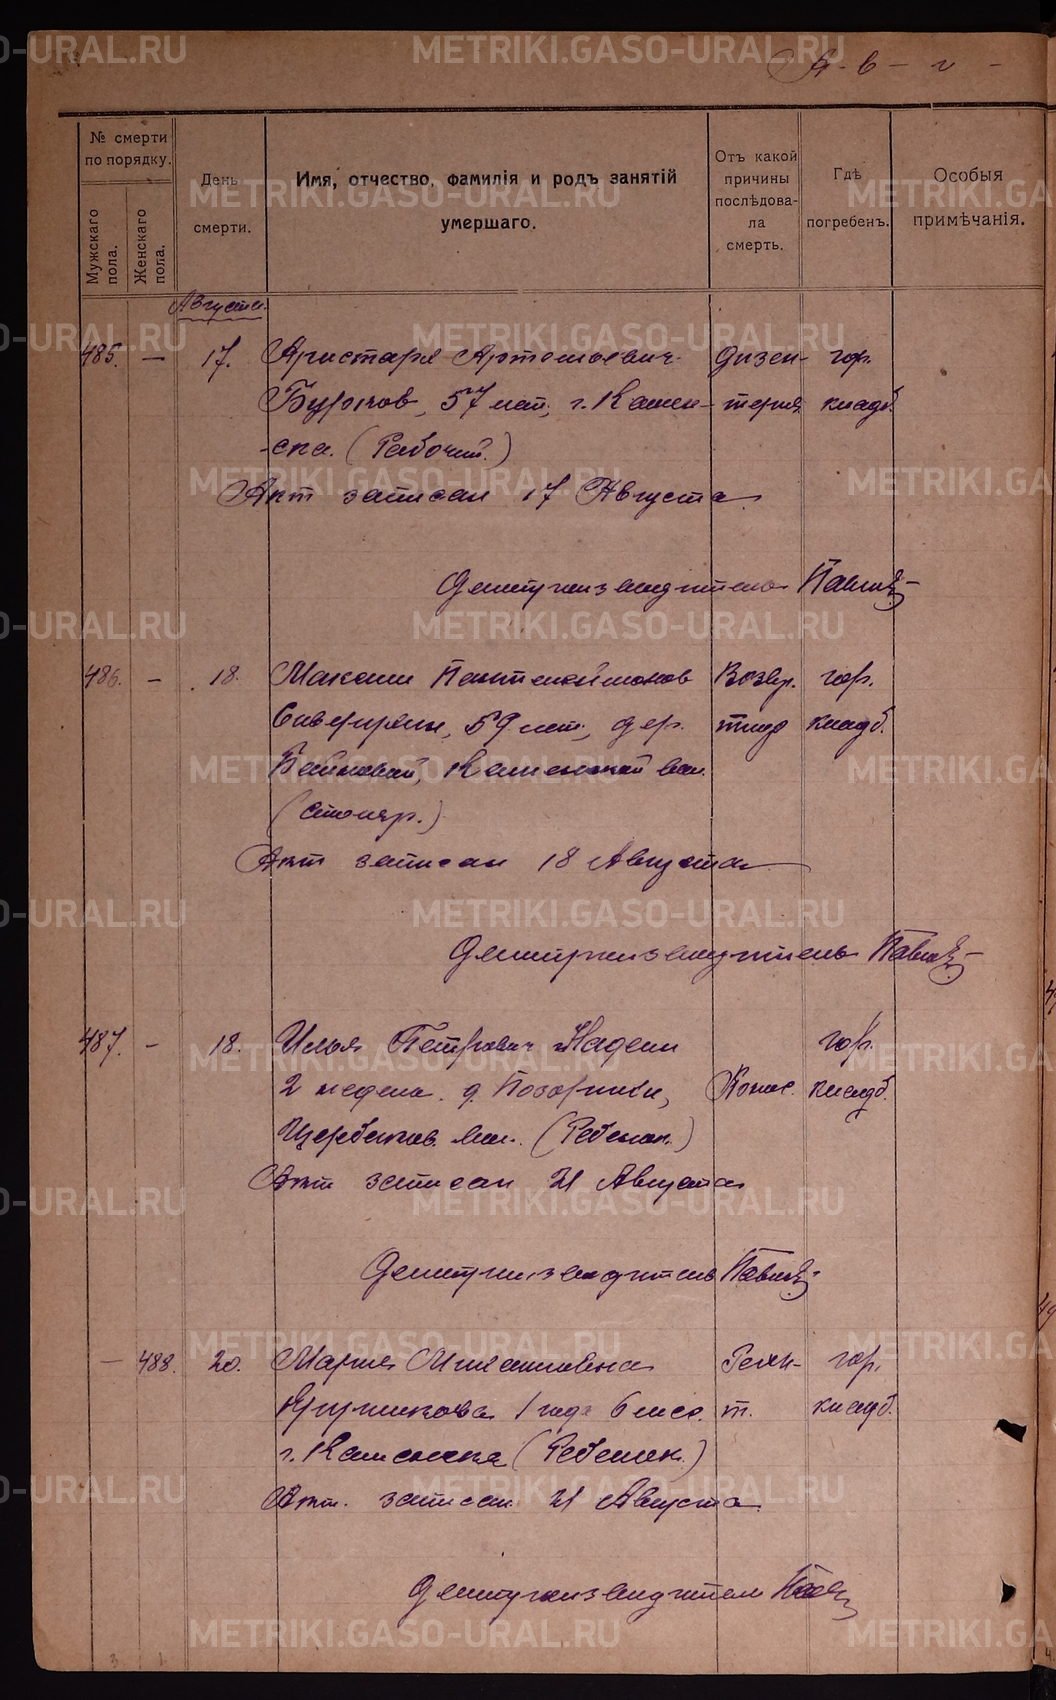 А - в - г -
№ смерти по порядку.
Мужскаго пола.
Женскаго пола.
День смерти.
Имя, отчество, фамилія и родъ занятій умершаго.
Отъ какой причины послѣдовала смерть.
Гдѣ погребенъ.
Особыя примѣчанія.
Августа.
485. — 17. Аристарх Артемьевич дизен- гор.
57 лет, г. Камен- терия кладб.
-ска. (Рабочий.)
Акт записан 17 Августа.
Делопроизводитель
486. — 18. Максим Пантелеймонов Возвр. гор.
59 лет, дер. тиф кладб.
Байновой, Каменской вол.
(столяр.)
Акт записан 18 Августа
Делопроизводитель
487. — 18. Илья Петрович гор.
2 недели. д. кладб.
Щербаков. вол. (Ребенок.)
Акт записан 21 Августа
Делопроизводитель
— 488. 20. Мария гор.
1 год 6 мес. т. кладб.
г. Каменска (Ребенок.)
Акт. записан 21 Августа.
Делопроизводитель
METRIKI.GASO-URAL.RU